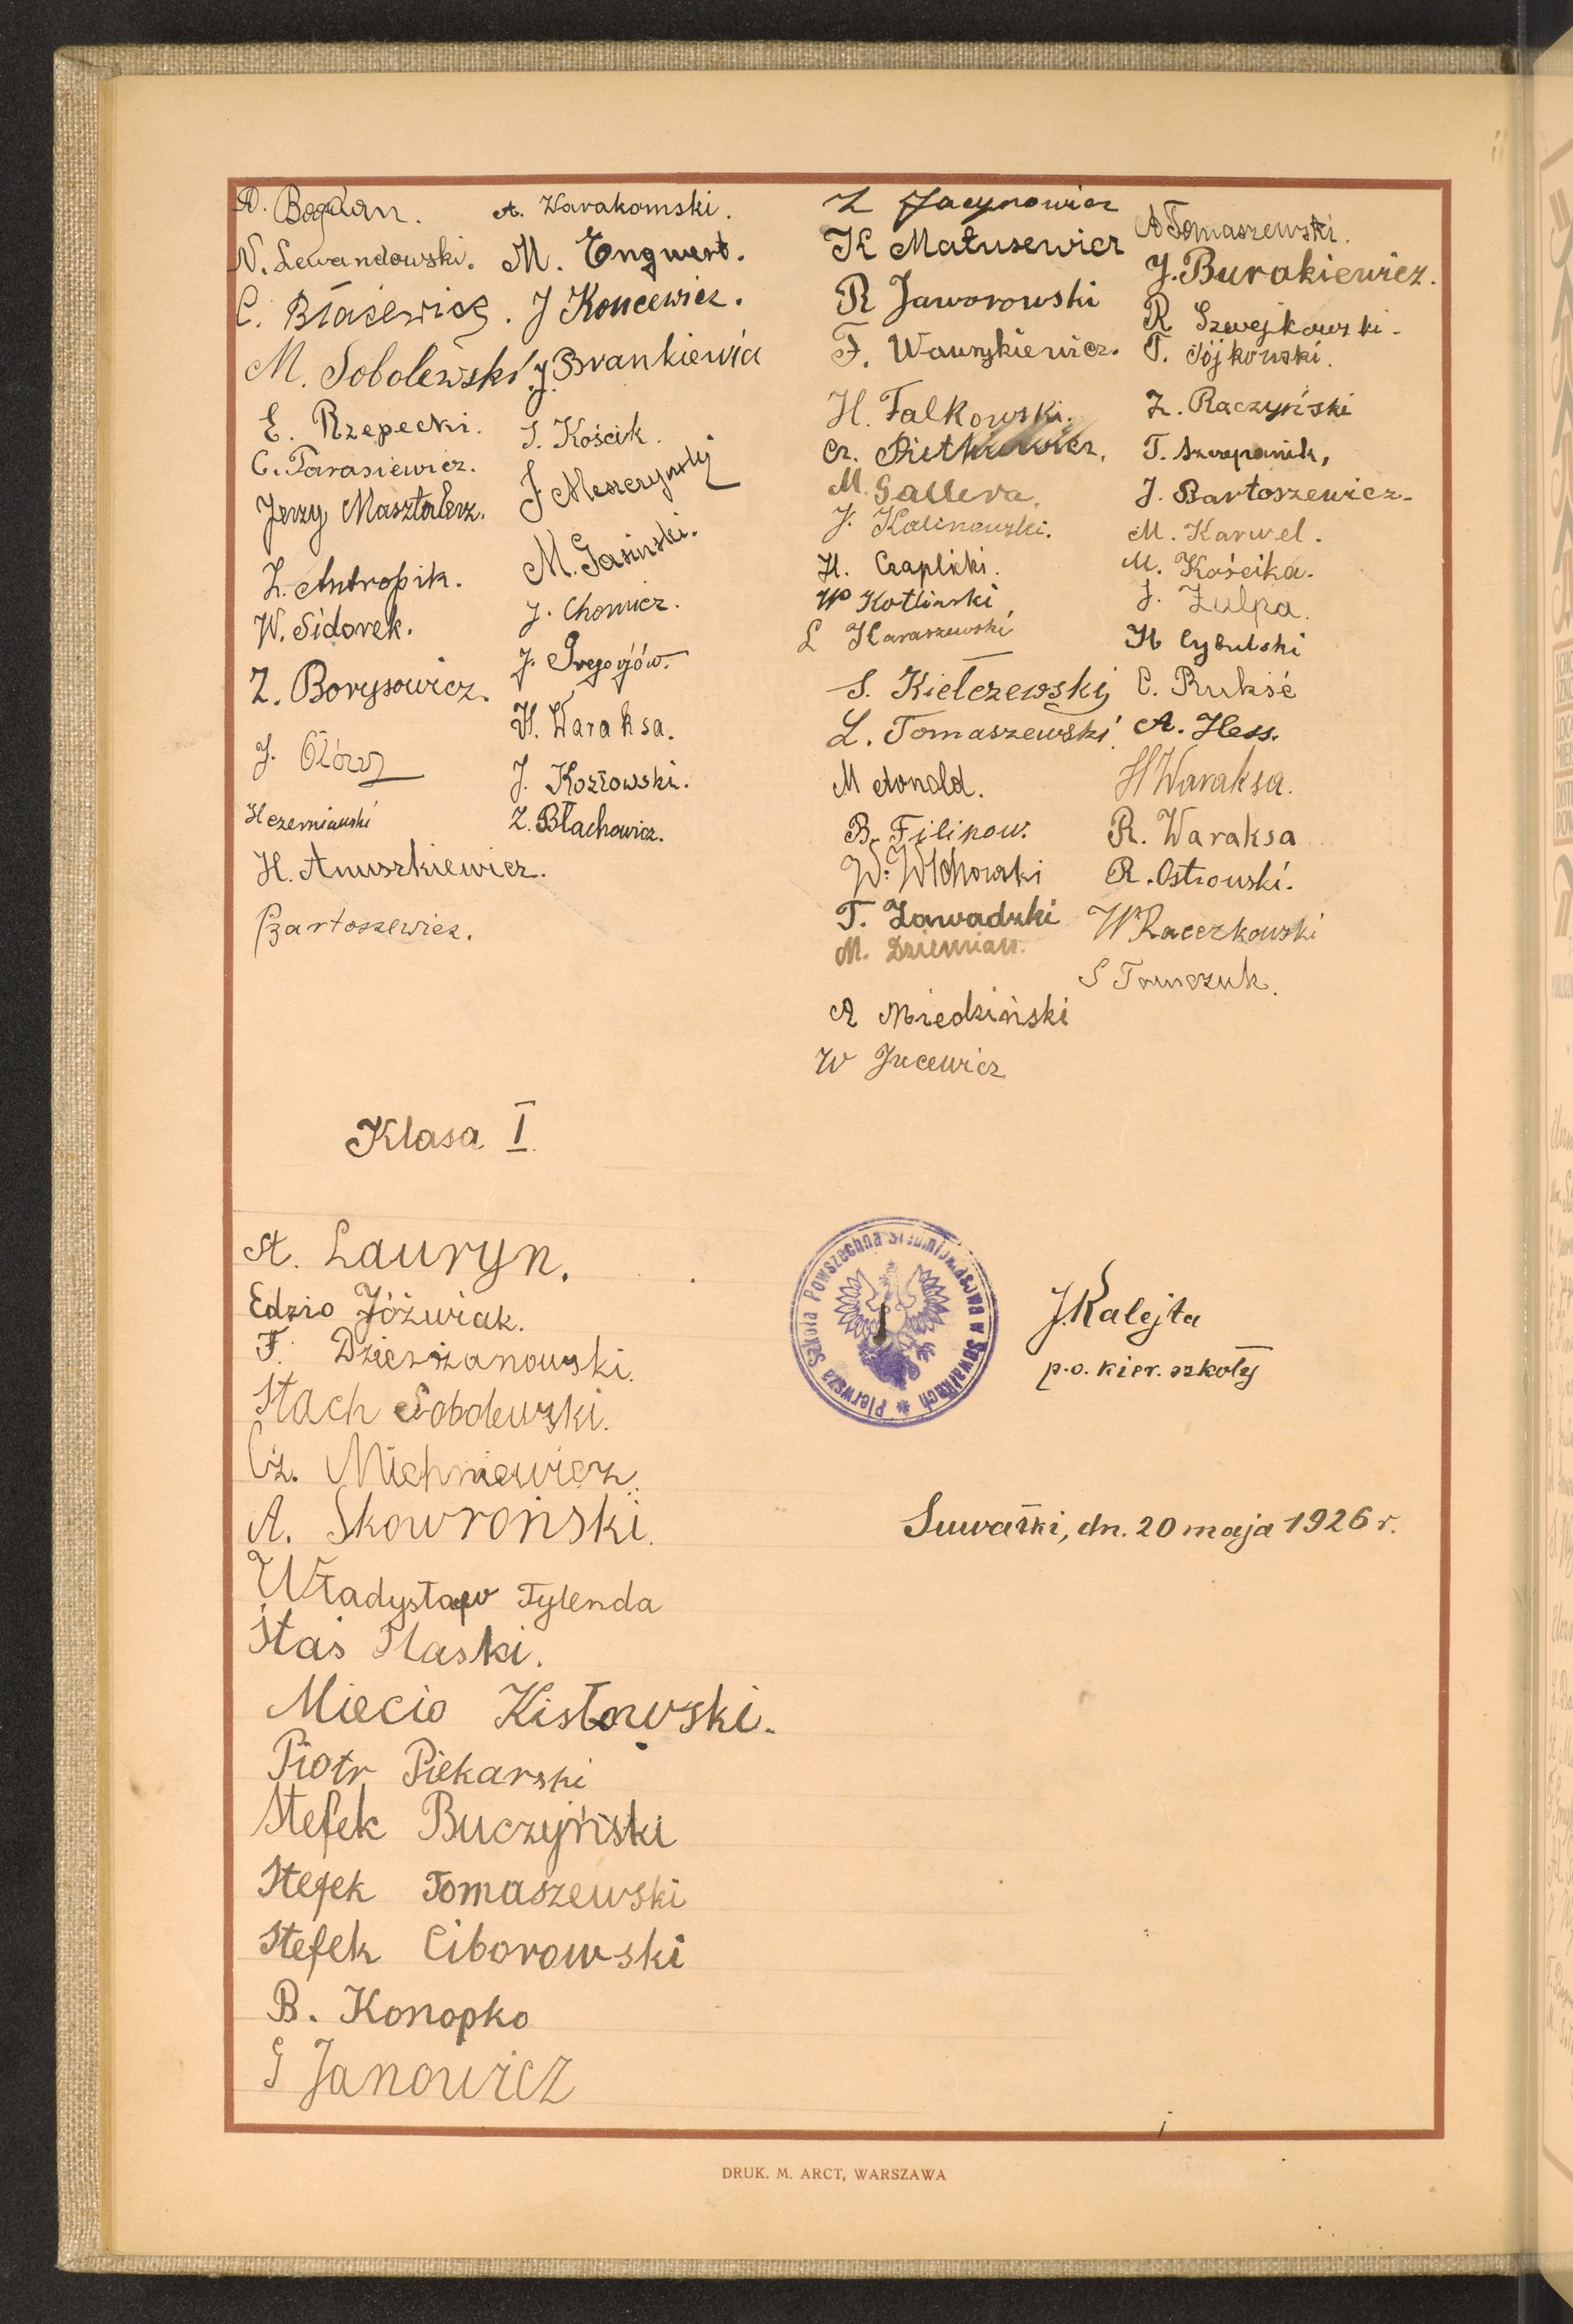 A. Bogdan.
N. Lewandowski.
C. Błażewicz.
M. Sobolewski
E. Rzepecki.
C. Tarasiewicz.
Jerzy Masztalerz.
Z. Antropik.
W. Sidorek.
Z. Borysowicz.
J. Ołów
H Czerniawski
H. Anuszkiewicz.
Bartoszewicz.
A. Warakomski.
M. Engwert.
J Koncewicz.
J. Brankiewicz
S. Kościk.
J. Meszczyński
M. Jasiński.
J. Chomicz.
J. Gregorjów.
H. Waraksa.
J. Kozłowski.
Z. Błachowicz.
Z Jacynowicz
K Matusewicz
R Jaworowski
F. Wawrykiewicz.
H. Falkowski.
Cz. Pietkiewicz.
M. Gallera.
J. Kalinowski.
H. Czaplicki.
W Kotliński,
L Haraszewski
S. Kiełczewski
L. Tomaszewski.
M Arnold.
B. Filipow.
W. Wichowski
T. Zawadzki
M. Dziemian.
A Miedziński
W Jucewicz
A Tomaszewski.
J. Burakiewicz.
R Szwejkowski.
T. Sójkowski.
Z. Raczyński
T. Szczepanik,
J. Bartoszewicz.
M. Karwel.
M. Kościka.
J. Zulpa.
H Cybulski
C. Rukść
A. Hess.
H Waraksa.
R. Waraksa
R. Ostrowski.
W Raczkowski
S Tomczuk.
Klasa I.
A. Lauryn.
Edzio Jóźwiak.
F. Dzierżanowski.
Stach Sobolewski.
Cz. Michniewicz.
A. Skowroński.
Władysław Tylenda
Staś Płaski.
Miecio Kisłowski.
Piotr Piekarski
Stefek Buczyński
Stefek Tomaszewski
Stefek Ciborowski
B. Konopko
G Janowicz
Pierwsza Szkoła Powszechna Siedmioklasowa w Suwałkach
J. Kalejta
p.o. kier. szkoły
Suwałki, dn. 20 maja 1926 r.
DRUK. M. ARCT, WARSZAWA